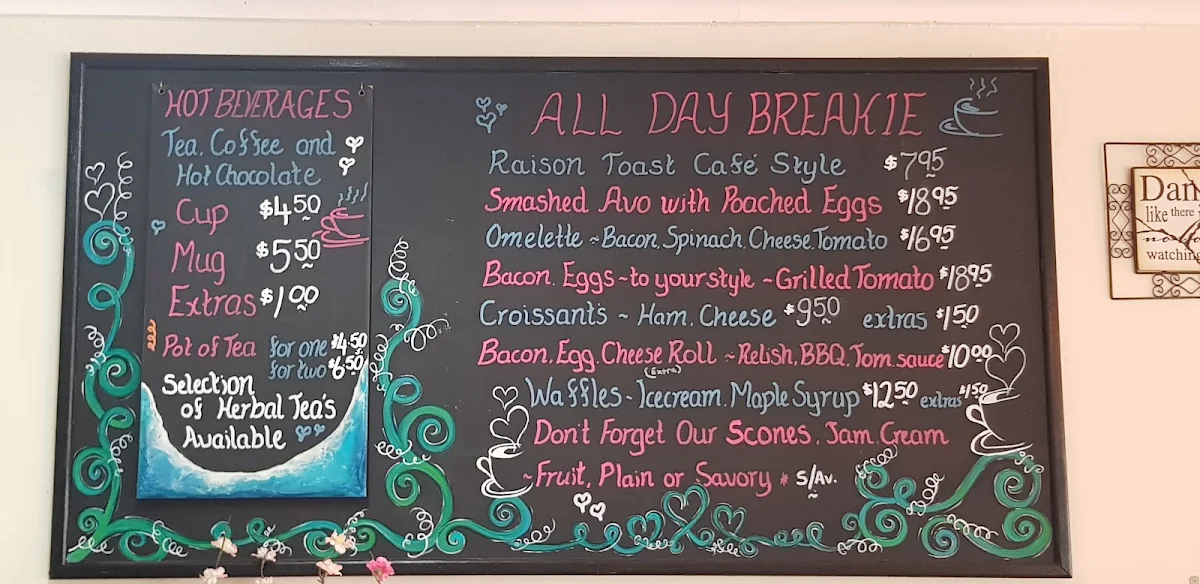 HOT BEVERAGES
Tea, Coffee and
Hot Chocolate
Cup $4.50
Mug $5.50
Extras $1.00
Pot of Tea for one $4.50
for two $6.50
Selection
of Herbal Tea's
Available
ALL DAY BREAKIE
Raison Toast Café Style $7.95
Smashed Avo with Poached Eggs $18.95
Omelette ~ Bacon, Spinach, Cheese, Tomato $16.95
Bacon, Eggs ~ to your style ~ Grilled Tomato $18.95
Croissants ~ Ham, Cheese $9.50 extras $1.50
Bacon, Egg, Cheese Roll ~ Relish, BBQ, Tom sauce $10.00
(Extra)
Waffles ~ Icecream, Maple Syrup $12.50 extras $1.50
Don't Forget Our Scones, Jam, Cream
~ Fruit, Plain or Savory * S/Av.
Dan
like there
watching